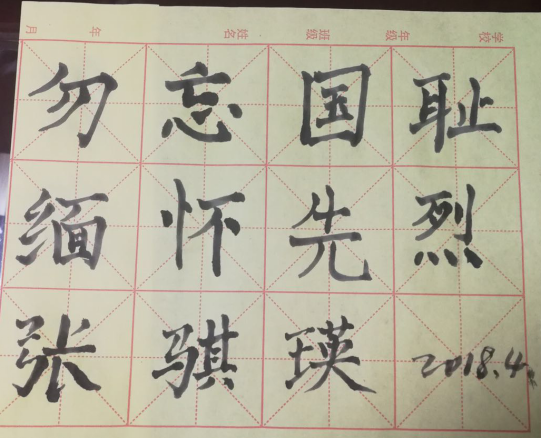 学校 年级 班级 姓名 年 月
勿忘国耻
缅怀先烈
张骐瑛 2018.4.